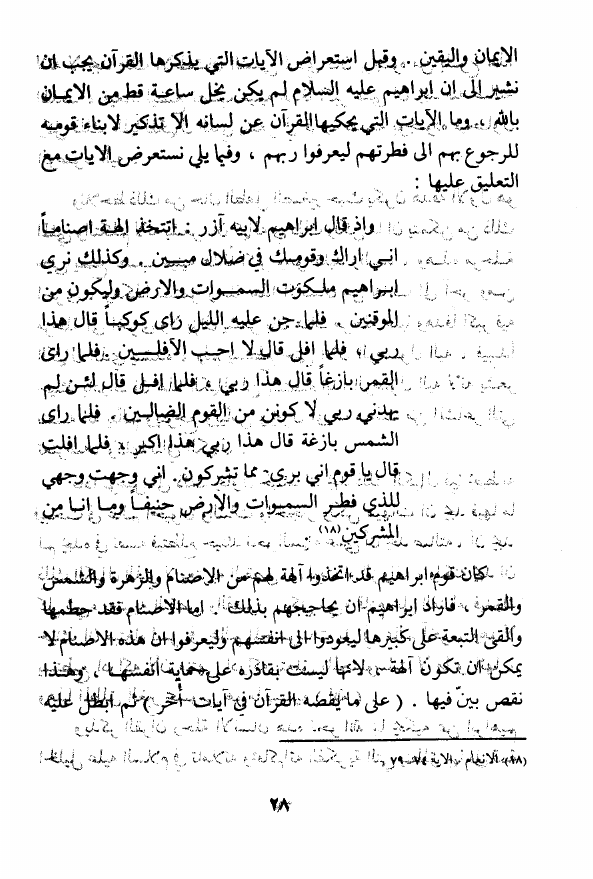 الايمان واليقين . وقبل استعراض الآيات التي يذكرها القرآن يجب ان
نشير الى ان ابراهيم عليه السلام لم يكن يخل ساعة قط من الايمان
بالله . وما الآيات التي يحكيها القرآن عن لسانه الا تذكير لابناء قومه
للرجوع بهم الى فطرتهم ليعرفوا ربهم ، وفيما يلي نستعرض الايات مع
التعليق عليها :
واذ قال ابراهيم لابيه آزر : اتتخذ إلهة اصناماً
انـي اراك وقومك في ضلال مبـين . وكذلك نري
ابراهيم ملكوت السمـوات والارض وليكون من
الموقنين . فلما جن عليه الليل رأى كوكباً قال هذا
ربي ، فلما افل قال لا احب الآفلـين . فلما رأى
القمر بازغاً قال هذا ربي ، فلما افـل قال لئـن لم
يهدني ربي لاكونن من القوم الضالين . فلما رأى
الشمس بازغة قال هذا ربي هذا اكبر ، فلما افلت
قال يا قوم اني بري مما تشركون . اني وجهت وجهي
للذي فطر السموات والارض حنيفاً ومـا انـا من
المشركين (١٨)
كان قوم ابراهيم قد اتخذوا آلهة لهم من الاصنام والزهرة والشمس
والقمر ، فاراد ابراهيم ان يحاججهم بذلك . اما الاصنام فقد حطمها
والقى التبعة على كبيرها ليعودوا الى انفسهم وليعرفوا ان هذه الاصنام لا
يمكن ان تكون آلهة ، لانها ليست بقادرة على حماية أنفسها ، وهـذا
نقص بيّن فيها . ( على ما يقصه القرآن في آيات أخر ) ثم ابطل عليه
(١٨)
٢٨